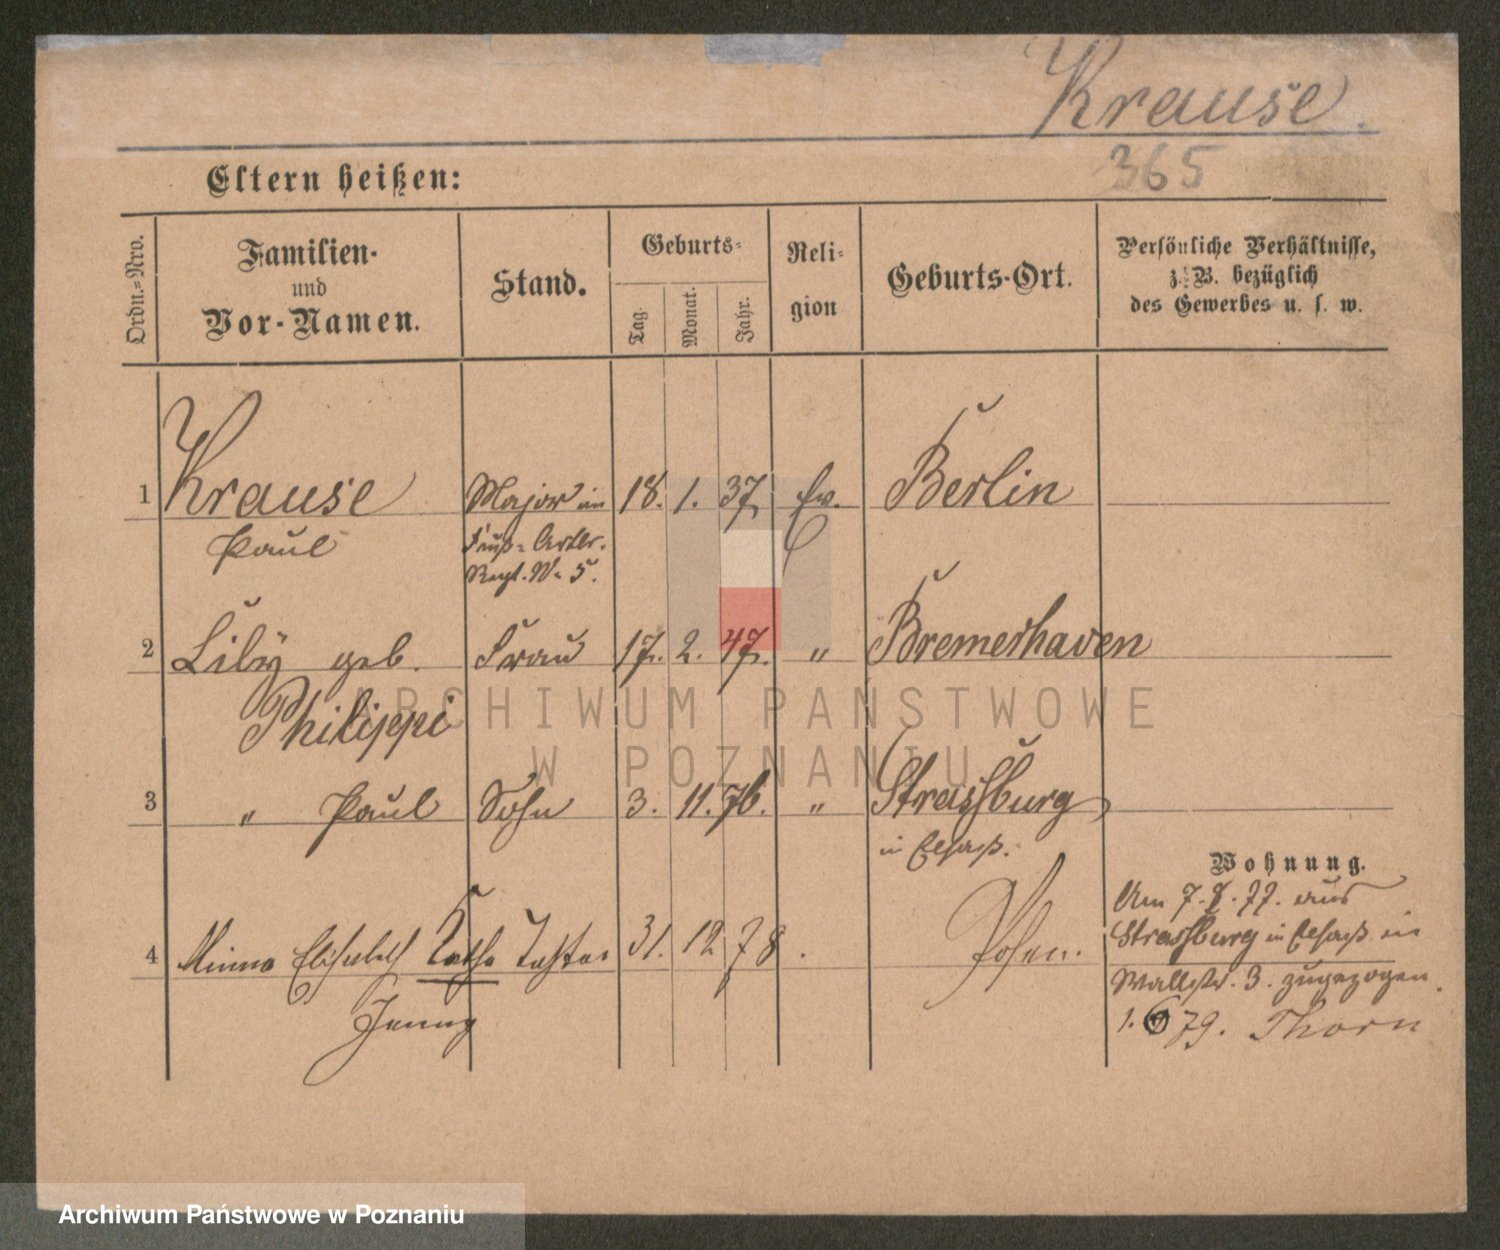 Krause.
365
Eltern heißen:
Ordn.=Nro.
Familien-
und
Vor-Namen.
Stand.
Geburts-
Tag.
Monat.
Jahr.
Reli-
gion
Geburts-Ort.
Persönliche Verhältnisse,
z. B. bezüglich
des Gewerbes u. s. w.
1 Krause Major im 18. 1. 37. Ev. Berlin
Paul Fuß-Artlr.
Regt. N. 5.
2 Lily geb. Frau 17. 2. 47. " Bremerhaven
Philippi
3 " Paul Sohn 3. 11. 76. " Strassburg
in Elsaß.
Wohnung.
4 Minna Elisabeth Käthe Tochter 31. 12 78. Posen.
Jenny
Am 7. 8. 77. aus
Strassburg in Elsaß in
Wallstr. 3. zugezogen.
1. 6 79. Thorn
ARCHIWUM PAŃSTWOWE
W POZNANIU
Archiwum Państwowe w Poznaniu